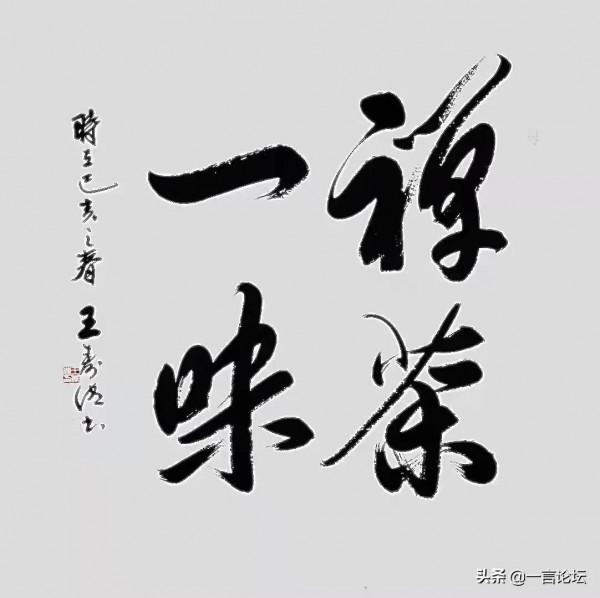 禅茶
一味
時在己亥之春 王寿书
头条 @一言论坛